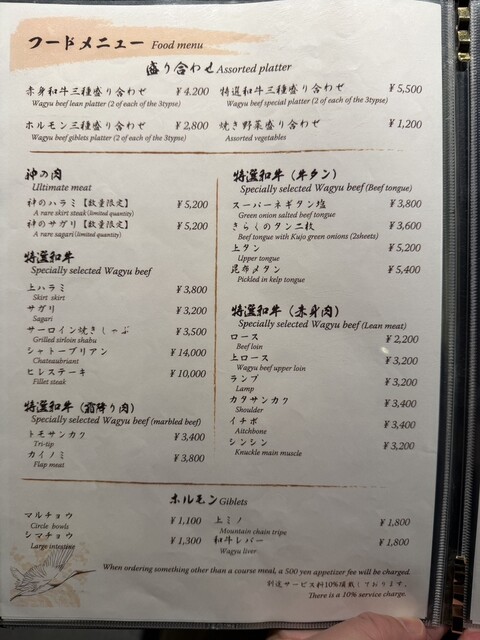 フードメニュー Food menu
盛り合わせ Assorted platter
赤身和牛三種盛り合わせ ¥4,200
Wagyu beef lean platter (2 of each of the 3type)
特選和牛三種盛り合わせ ¥5,500
Wagyu beef special platter (2 of each of the 3types)
ホルモン三種盛り合わせ ¥2,800
Wagyu beef giblets platter (2 of each of the 3type)
焼き野菜盛り合わせ ¥1,200
Assorted vegetables
神の肉
Ultimate meat
神のハラミ【数量限定】 ¥5,200
A rare skirt steak (limited quantity)
神のサガリ【数量限定】 ¥5,200
A rare sagari (limited quantity)
特選和牛
Specially selected Wagyu beef
上ハラミ ¥3,800
Skirt skirt
サガリ ¥3,200
Sagari
サーロイン焼きしゃぶ ¥3,500
Grilled sirloin shabu
シャトーブリアン ¥14,000
Chateaubriant
ヒレステーキ ¥10,000
Fillet steak
特選和牛（霜降り肉）
Specially selected Wagyu beef (marbled beef)
トモサンカク ¥3,400
Tri-tip
カイノミ ¥3,800
Flap meat
特選和牛（牛タン）
Specially selected Wagyu beef (Beef tongue)
スーパーネギタン塩 ¥3,800
Green onion salted beef tongue
きらくのタン二枚 ¥3,600
Beef tongue with Kujo green onions (2sheets)
上タン ¥5,200
Upper tongue
昆布〆タン ¥5,400
Pickled in kelp tongue
特選和牛（赤身肉）
Specially selected Wagyu beef (Lean meat)
ロース ¥2,200
Beef loin
上ロース ¥3,200
Wagyu beef upper loin
ランプ ¥3,200
Lamp
カタサンカク ¥3,400
Shoulder
イチボ ¥3,400
Aitchbone
シンシン ¥3,200
Knuckle main muscle
ホルモン Giblets
マルチョウ ¥1,100
Circle bowls
シマチョウ ¥1,300
Large intestine
上ミノ ¥1,800
Mountain chain tripe
和牛レバー ¥1,800
Wagyu liver
When ordering something other than a course meal, a 500 yen appetizer fee will be charged.
別途サービス料10%頂戴しております。
There is a 10% service charge.